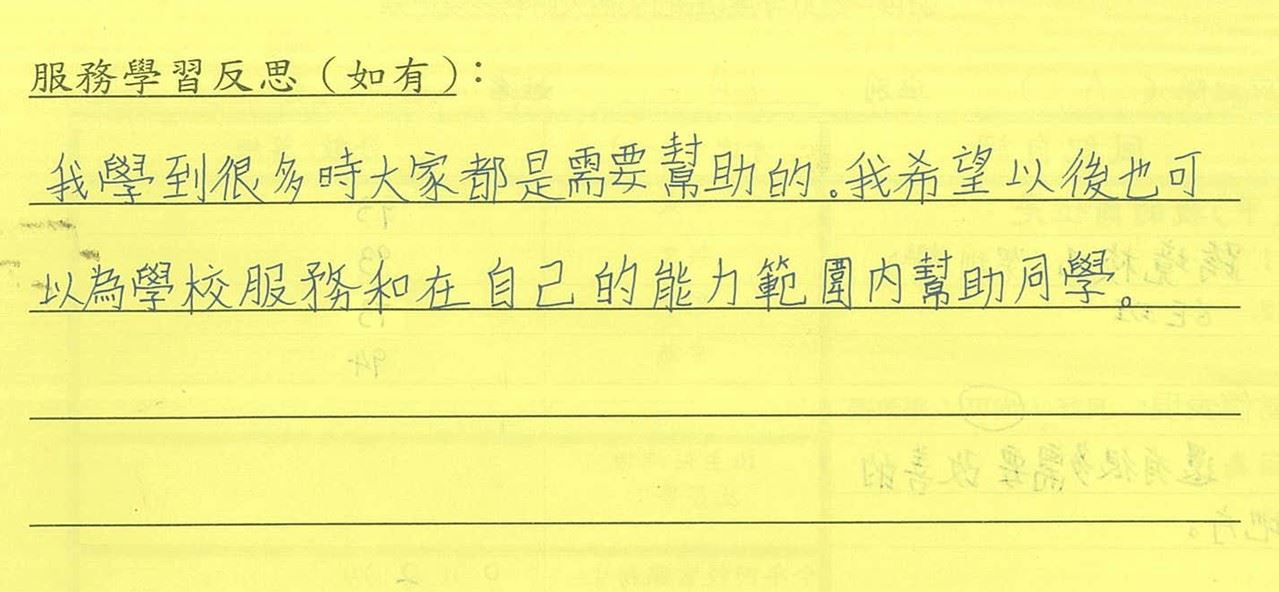 服務學習反思（如有）：
我學到很多時大家都是需要幫助的。我希望以後也可
以為學校服務和在自己的能力範圍內幫助同學。